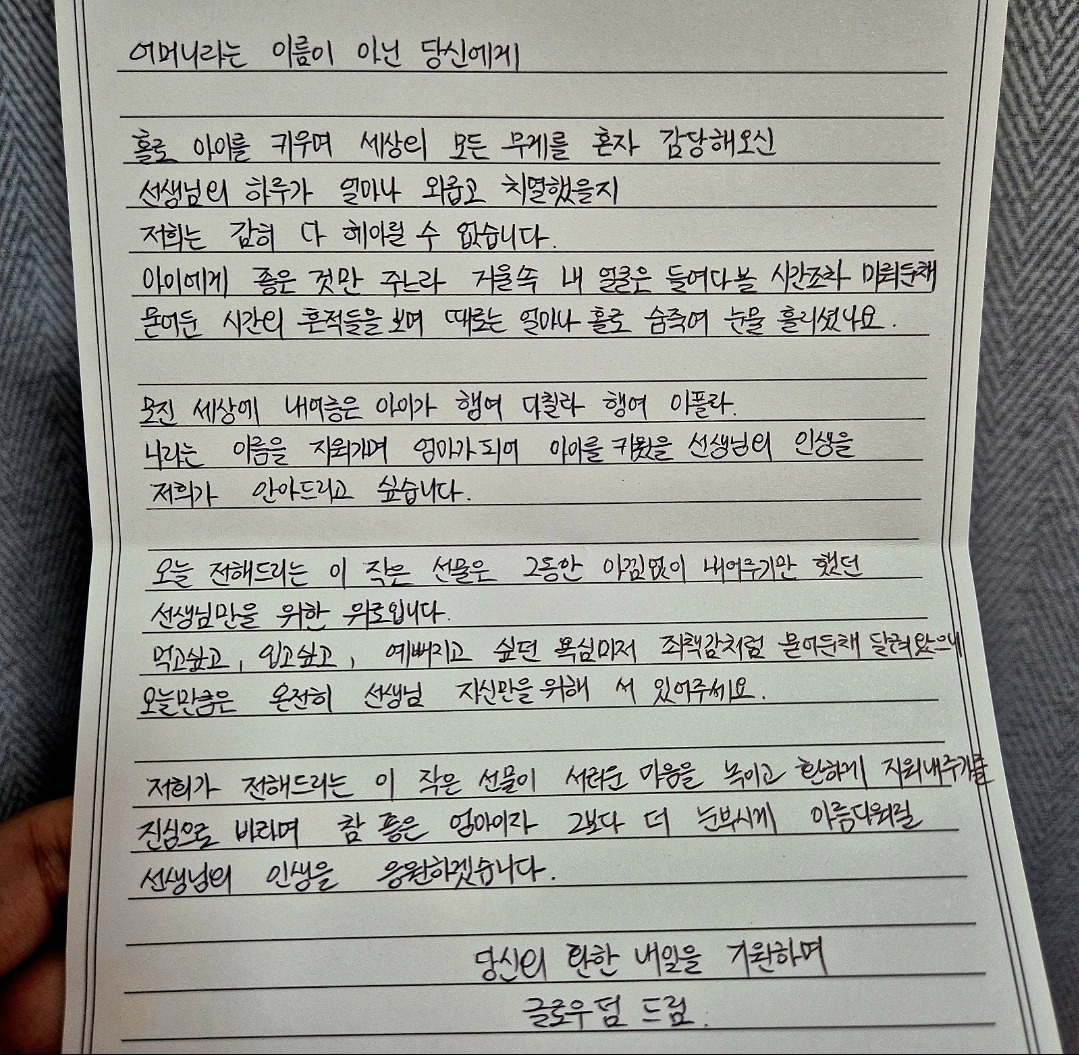 어머니라는 이름이 아닌 당신에게
홀로 아이를 키우며 세상의 모든 무게를 혼자 감당해오신
선생님의 하루가 얼마나 외롭고 치열했을지
저희는 감히 다 헤아릴 수 없습니다.
아이에게 좋은 것만 주느라 거울속 내 얼굴은 들여다볼 시간조차 미뤄둔채
묻어둔 시간의 흔적들을 보며 때로는 얼마나 홀로 숨죽여 눈물 흘리셨나요.
모진 세상에 내어놓은 아이가 행여 다칠라 행여 아플라.
나라는 이름을 지워가며 엄마가 되어 아이를 키웠을 선생님의 인생을
저희가 안아드리고 싶습니다.
오늘 전해드리는 이 작은 선물은 그동안 아낌없이 내어주기만 했던
선생님만을 위한 위로입니다.
먹고싶고, 입고싶고, 예뻐지고 싶던 욕심마저 죄책감처럼 묻어둔채 달려왔으니
오늘만큼은 온전히 선생님 자신만을 위해 서 있어주세요.
저희가 전해드리는 이 작은 선물이 서러운 마음을 녹이고 환하게 지워내주기를
진심으로 바라며 참 좋은 엄마이자 그보다 더 눈부시게 아름다워질
선생님의 인생을 응원하겠습니다.
당신의 환한 내일을 기원하며
글로우덤 드림.